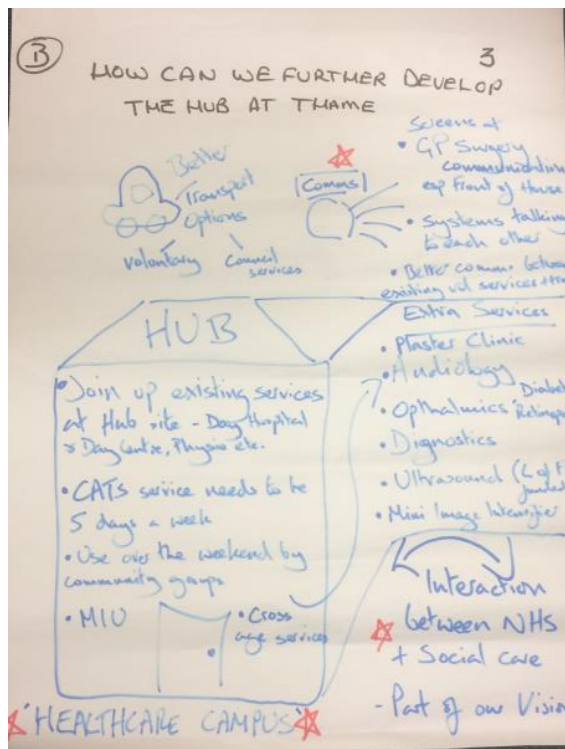 B
3
HOW CAN WE FURTHER DEVELOP
THE HUB AT THAME
Better
Transport
Options
Voluntary
Council
services
Comms
Screens at
• GP Surgery
communication
esp Front of House
• Systems talking
to each other
• Better comms between
existing vol services
HUB
• Join up existing services
at Hub site - Day Hospital
& Day Centre, Physio etc.
• CATs service needs to be
5 days a week
• Use over the weekend by
community groups
• MIU
• Cross
age services
'HEALTHCARE CAMPUS'
Extra Services
• Plaster Clinic
• Audiology
• Opthalmics
• Diagnostics
• Ultrasound (L of F
• Mini Image Intensifier
Interaction
between NHS
+ Social care
- Part of our Vision